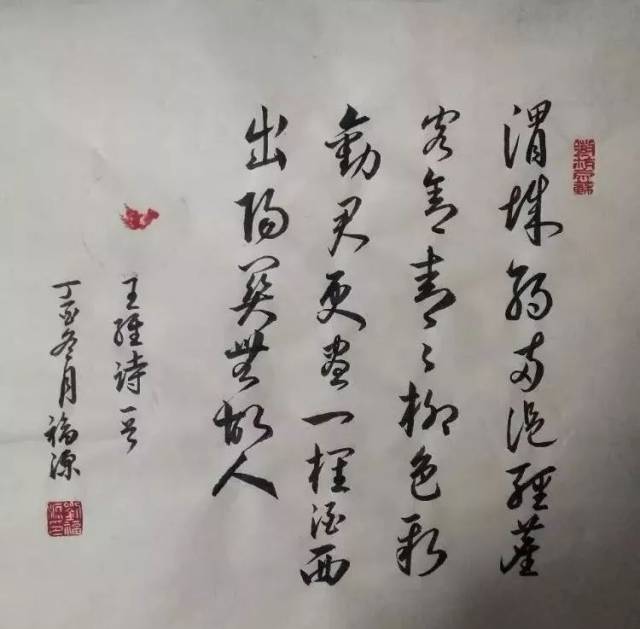 渭城朝雨浥輕塵
客舍青々柳色新
勸君更盡一杯酒西
出陽關無故人
王維詩一首
丁亥冬月福源